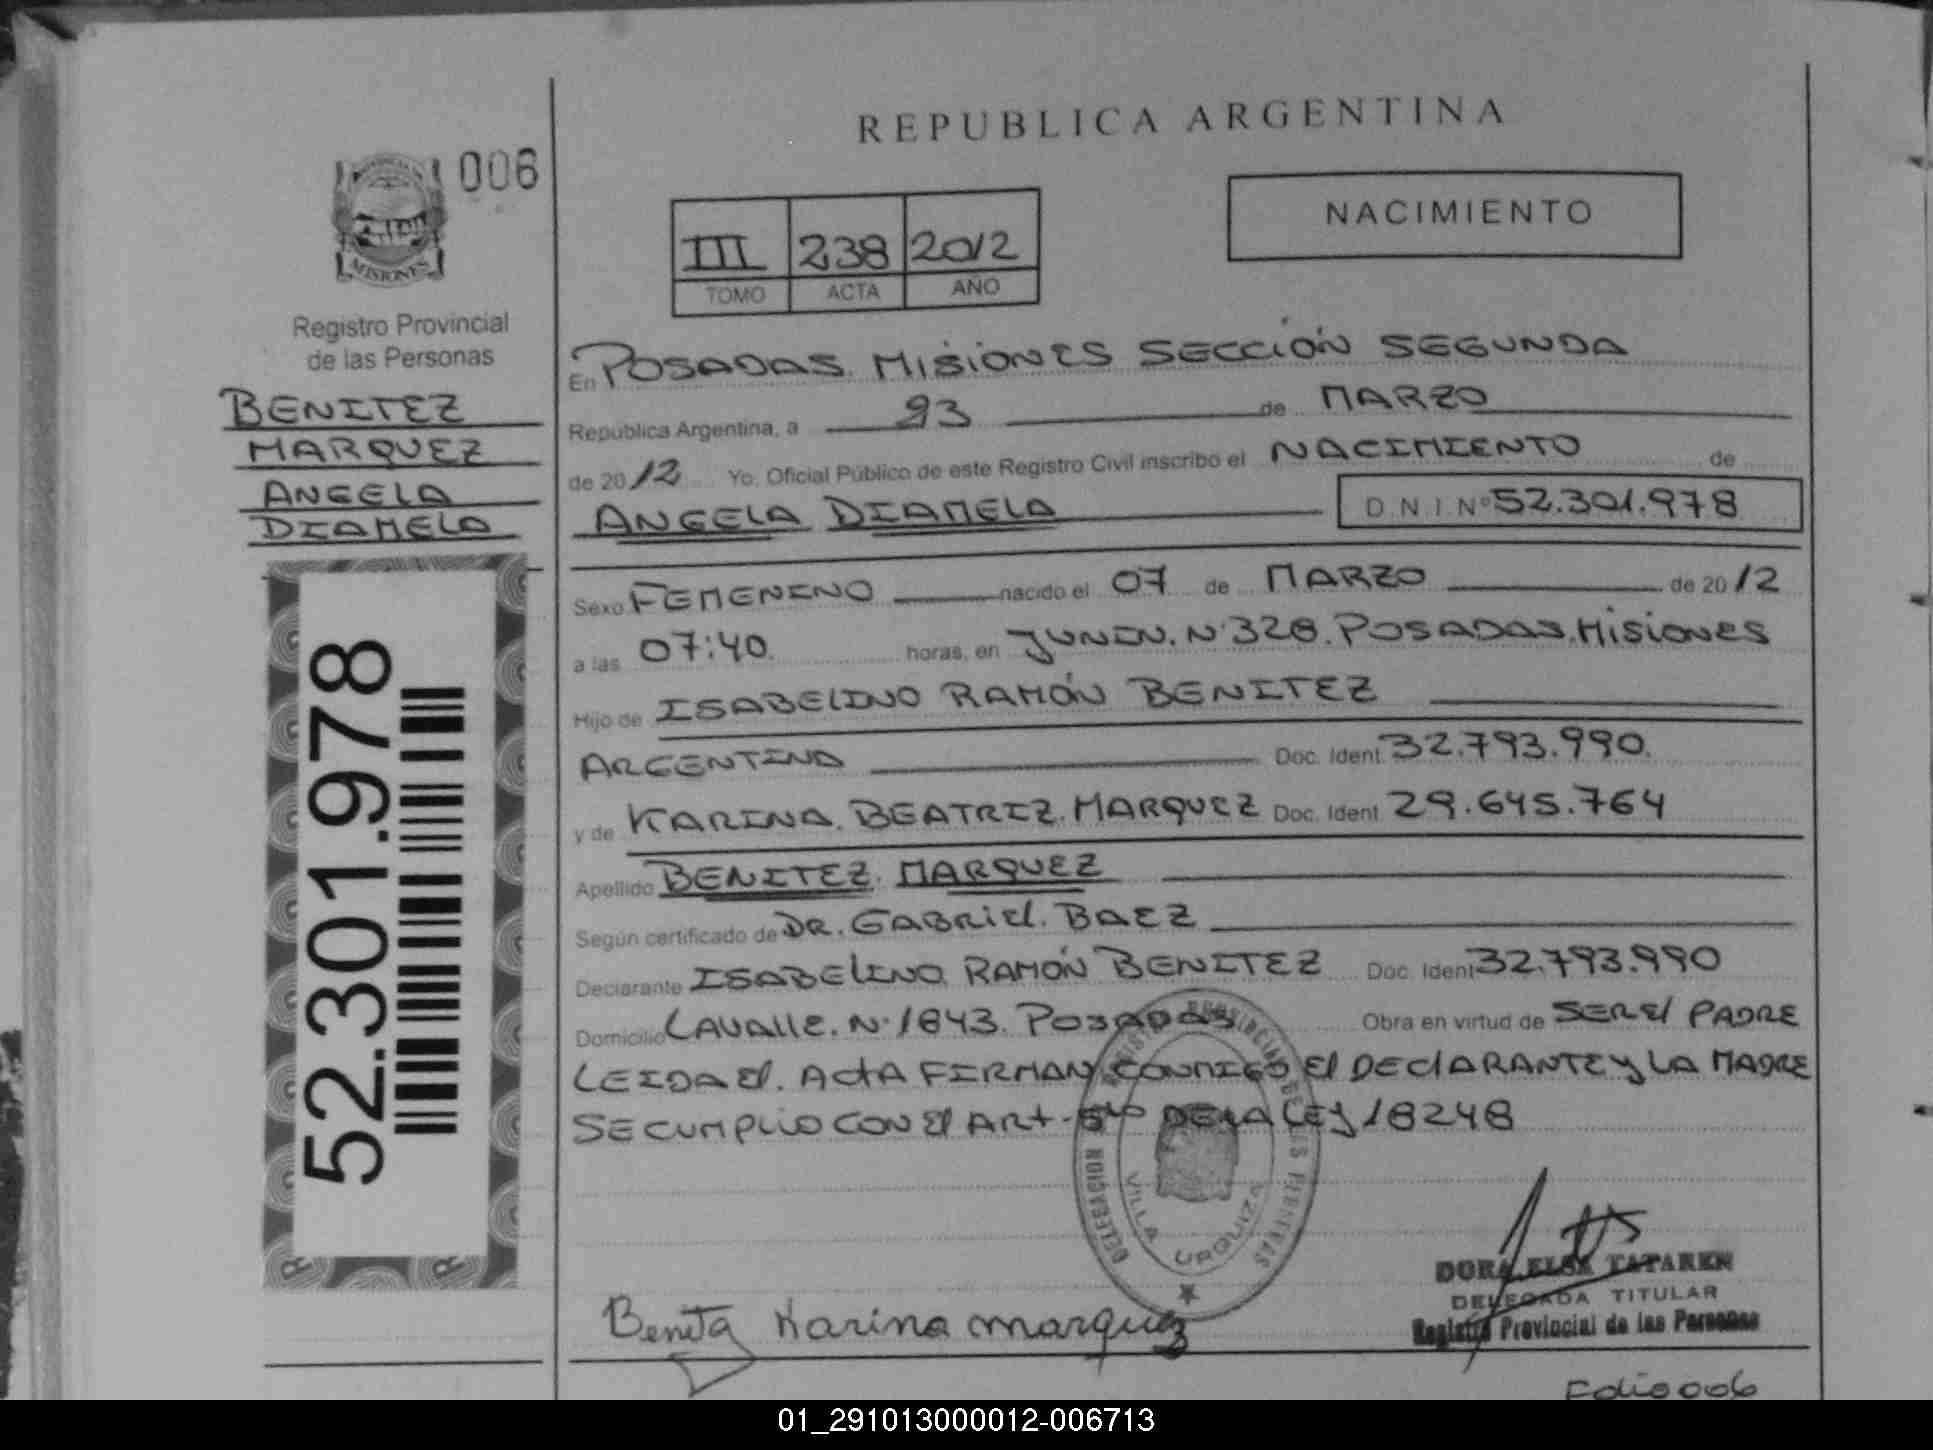 REPUBLICA ARGENTINA
006
NACIMIENTO
III 238 2012
TOMO ACTA AÑO
MISIONES
Registro Provincial
de las Personas
BENITEZ
MARQUEZ
ANGELA
DIAMELA
52.301.978
En POSADAS. MISIONES SECCIÓN SEGUNDA
Republica Argentina, a 23 de MARZO
de 2012 Yo, Oficial Público de este Registro Civil inscribo el NACIMIENTO de
ANGELA DIAMELA D.N.I. Nº 52.301.978
Sexo FEMENINO nacido el 07 de MARZO de 2012
a las 07:40. horas, en JUNIN. N° 328. POSADAS. MISIONES
Hijo de ISABELINO RAMÓN BENITEZ
ARGENTINA Doc. Ident. 32.793.990.
y de KARINA. BEATRIZ. MARQUEZ Doc. Ident. 29.645.764
Apellido BENITEZ. MARQUEZ
Según certificado de DR. GABRIEL. BAEZ
Declarante ISABELINO RAMÓN BENITEZ Doc. Ident 32.793.990
Domicilio LAVALLE. N° 1843. POSADAS Obra en virtud de SER El PADRE
LEIDA El. ACTA FIRMAN CONMIGO El DECLARANTE y LA MADRE
SE CUMPLIO CON El ART. 5to DE LA LEY 18248
DELEGACION VILLA URQUIZA
Benitez Karina marquez
DORA ELSA TATAREN
DELEGADA TITULAR
Registro Provincial de las Personas
Folio 006
01_291013000012-006713